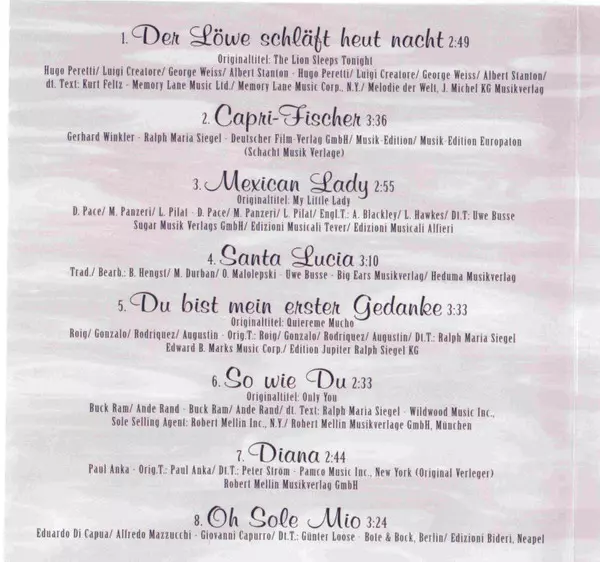 1. Der Löwe schläft heut nacht 2:49
Originaltitel: The Lion Sleeps Tonight
Hugo Peretti/ Luigi Creatore/ George Weiss/ Albert Stanton · Hugo Peretti/ Luigi Creatore/ George Weiss/ Albert Stanton/
dt. Text: Kurt Feltz · Memory Lane Music Ltd./ Memory Lane Music Corp., N.Y./ Melodie der Welt, J. Michel KG Musikverlag
2. Capri-Fischer 3:36
Gerhard Winkler · Ralph Maria Siegel · Deutscher Film-Verlag GmbH/ Musik-Edition/ Musik-Edition Europaton
(Schacht Musik Verlage)
3. Mexican Lady 2:55
Originaltitel: My Little Lady
D. Pace/ M. Panzeri/ L. Pilat · D. Pace/ M. Panzeri/ L. Pilat/ Engl.T.: A. Blackley/ L. Hawkes/ Dt.T: Uwe Busse
Sugar Musik Verlags GmbH/ Edizioni Musicali Tever/ Edizioni Musicali Alfieri
4. Santa Lucia 3:10
Trad./ Bearb.: B. Hengst/ M. Durban/ O. Malolepski · Uwe Busse · Big Ears Musikverlag/ Heduma Musikverlag
5. Du bist mein erster Gedanke 3:33
Originaltitel: Quiereme Mucho
Roig/ Gonzalo/ Rodriquez/ Augustin · Orig.T.: Roig/ Gonzalo/ Rodriquez/ Augustin/ Dt.T.: Ralph Maria Siegel
Edward B. Marks Music Corp./ Edition Jupiter Ralph Siegel KG
6. So wie Du 2:33
Originaltitel: Only You
Buck Ram/ Ande Rand · Buck Ram/ Ande Rand/ dt. Text: Ralph Maria Siegel · Wildwood Music Inc.,
Sole Selling Agent: Robert Mellin Inc., N.Y./ Robert Mellin Musikverlage GmbH, München
7. Diana 2:44
Paul Anka · Orig.T.: Paul Anka/ Dt.T.: Peter Ström · Pamco Music Inc., New York (Original Verleger)
Robert Mellin Musikverlag GmbH
8. Oh Sole Mio 3:24
Eduardo Di Capua/ Alfredo Mazzucchi · Giovanni Capurro/ Dt.T.: Günter Loose · Bote & Bock, Berlin/ Edizioni Bideri, Neapel